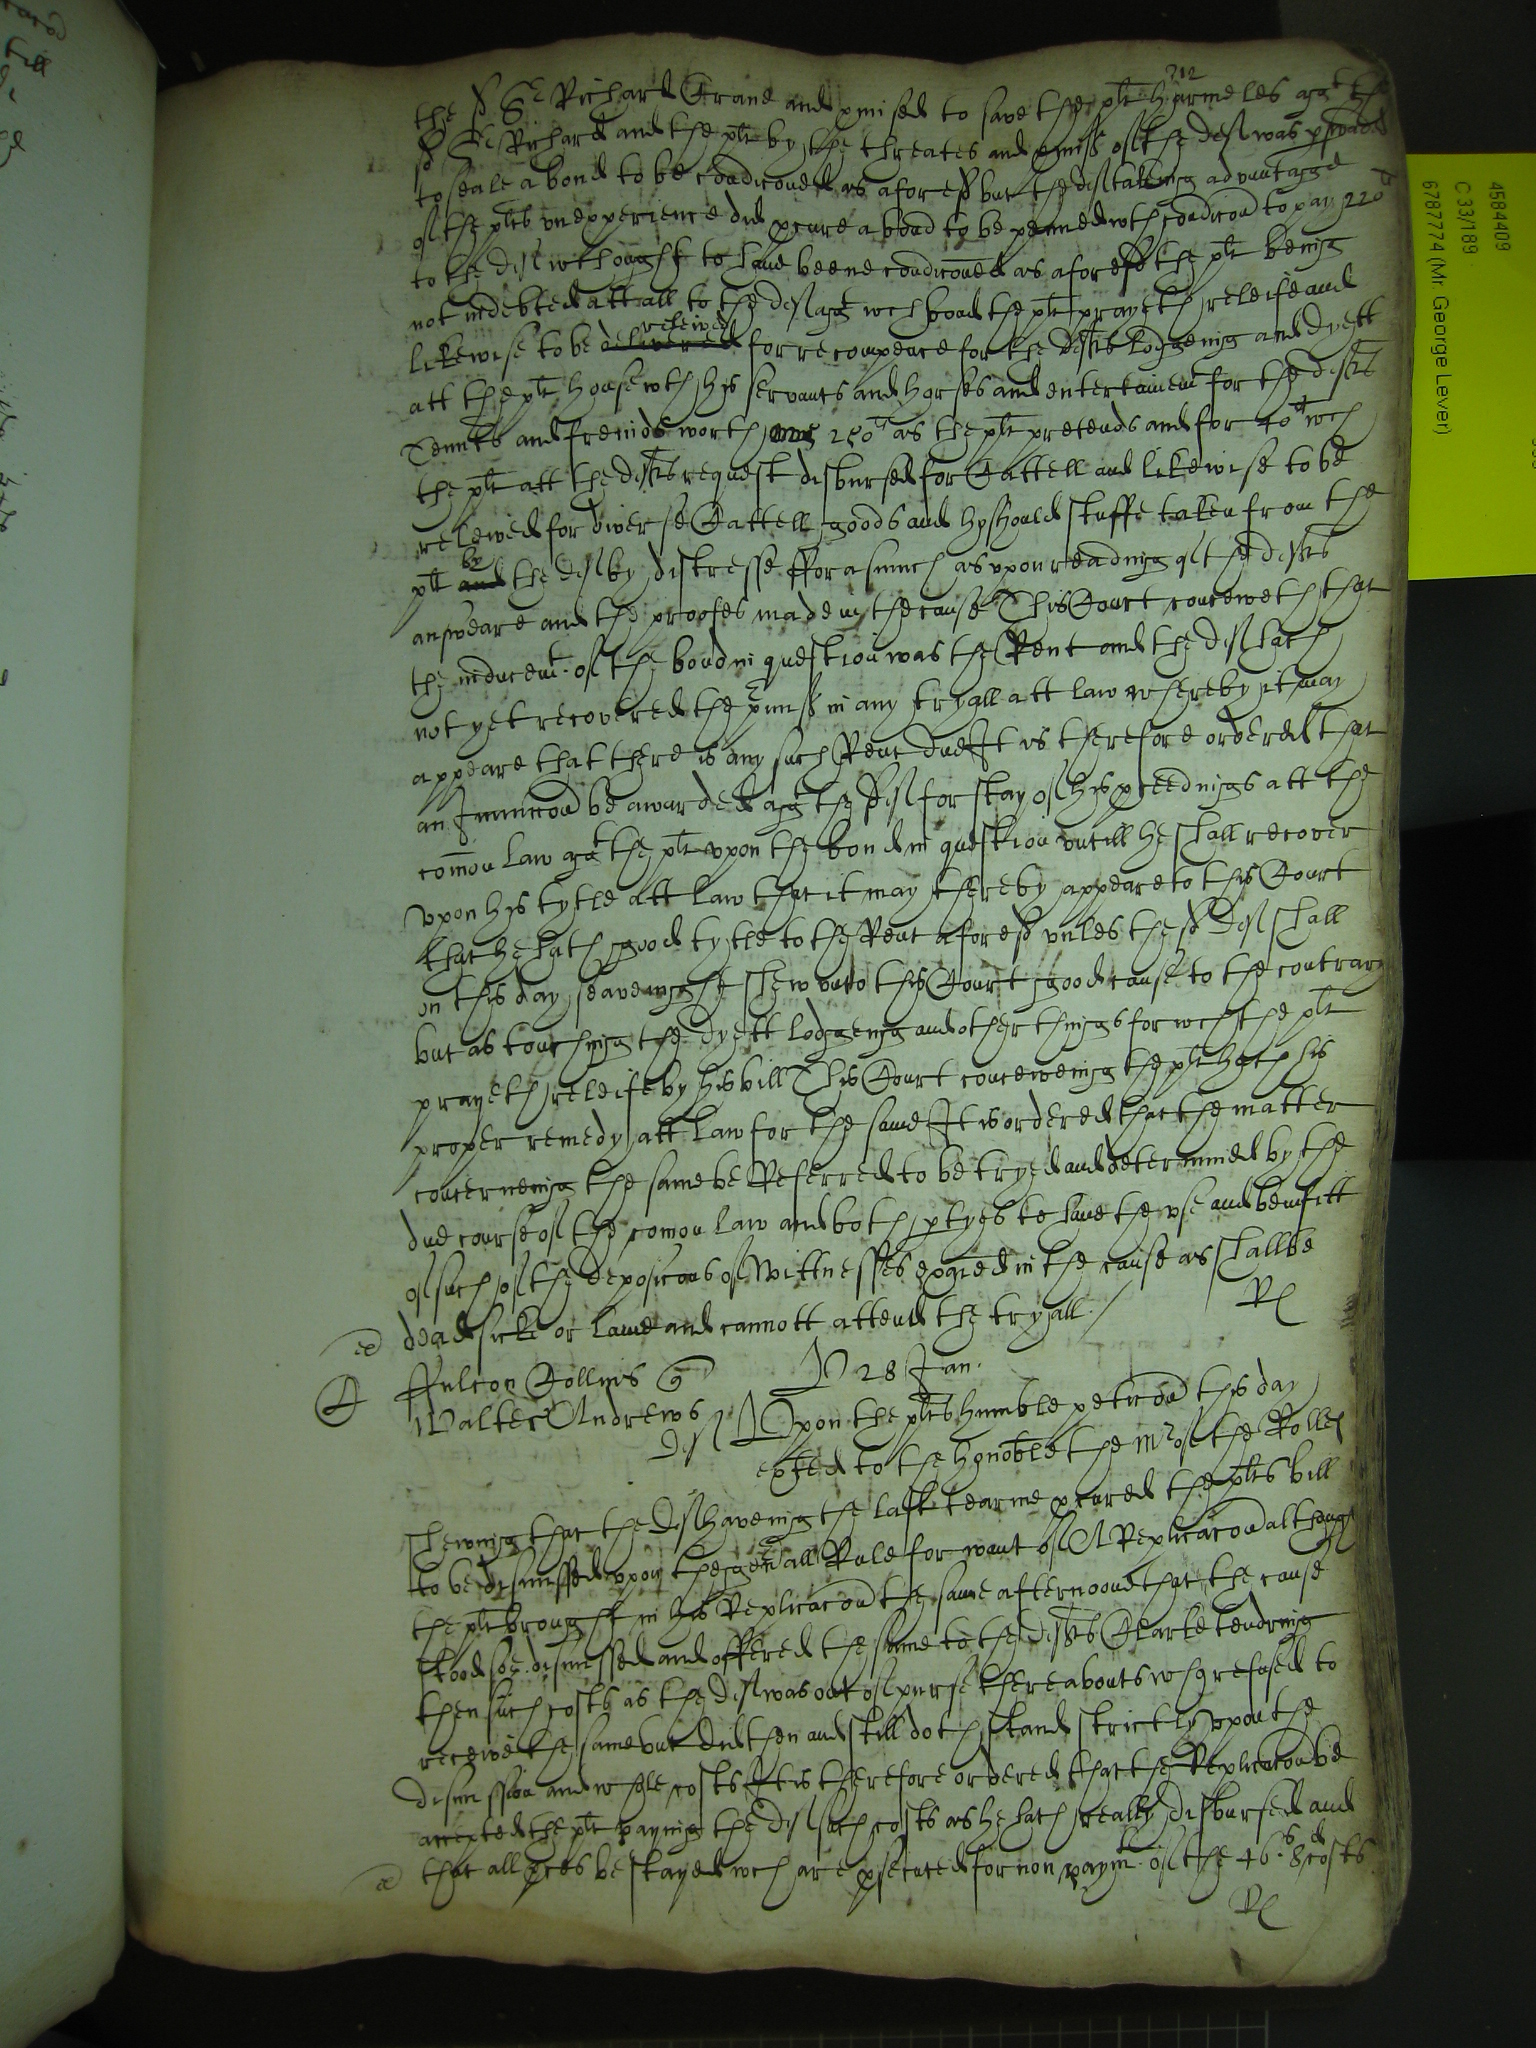 212
the sd Sr Richard Grane and pmised to save the plt harmeles agt the
sd Sr Richard and the plt by the threates and pmiss of the deft was pswaded
to seale a bond to be condiconed as aforesd but the deft takeing advantage
of the plts vnexperience did pcure a bond to be penned wth condicon to pay 220li
to the deft wthought to haue beene condiconed as aforesd the plt being
not indebted att all to the deft agt wch bond the plt prayeth releife and
likewise to be delivered releived for recompence for the defts lodgeing and dyett
att the plt house wth his servants and horses and entertainemt for the defts
Tennts and freinds worth 250li as the plt pretends and for 40li wch
the plt att the defts request disbursed for Cattell and likewise to be
releived for diverse Cattell goods and hyshould stuffe taken from the
plt and by the deft by distresse fforasmuch as vpon reading of the defts
answeare and the proofes made in the cause This Court conceiveth that
the inducemt of the bond in question was the Rent and the deft hath
not yet recovered the pmiss in any tryall att law whereby it may
appeare that there is any such Rent due It is therefore ordered that
an Iniunccon be awarded agt the deft for stay of his pceedings att the
comon law agt the plt vpon the bond in question vntill he shall recover
vpon his tytle att law that it may thereby appeare to this Court
that he hath good tytle to the Rent aforesd vnles the sd Deft shall
on this day seaveinght shew vnto this Court good cause to the contrary
but as touching the dyett lodgeing and other things for wch the plt
prayeth releife by his bill This Court conceiveing the plt hath his
proper remedy att law for the same It is ordered that the matter
concerneing the same be Referred to be tryed and determined by the
due course of the comon law and both ptyes to haue the vse and benifitt
of such of the deposicons of Wittnesses exaied in the cause as shallbe
dead sicke or lame and cannott attend the tryall./
Rl
28 Jan.
ffulcon Collins
Walter Andrews deft
Vpon the plts humble peticon this day
exhted to the honoble the Mr of the Rolles
shewing that the Deft haveing the last tearme pcured the plts bill
to be dismissed vpon the genall Rule for want of A Replicacon although
the plt brought in his Replicacon the same afternoone that the cause
stood soe dismissed and offered the same to the defts Clarke tendring
then such costs as the deft was out of purse thereabouts who refused to
receive the same but did then and still doth stand strictly vpon the
dismission and whole costs It is therefore ordered that the Replicacon be
accepted the plt paying the deft such costs as he hath really disbursed and
that all pces be stayed wch are psecuted for non paymt of the 46s 8d costs
Rl
4584409
C 33/189
6787774 (Mr. George Lever)